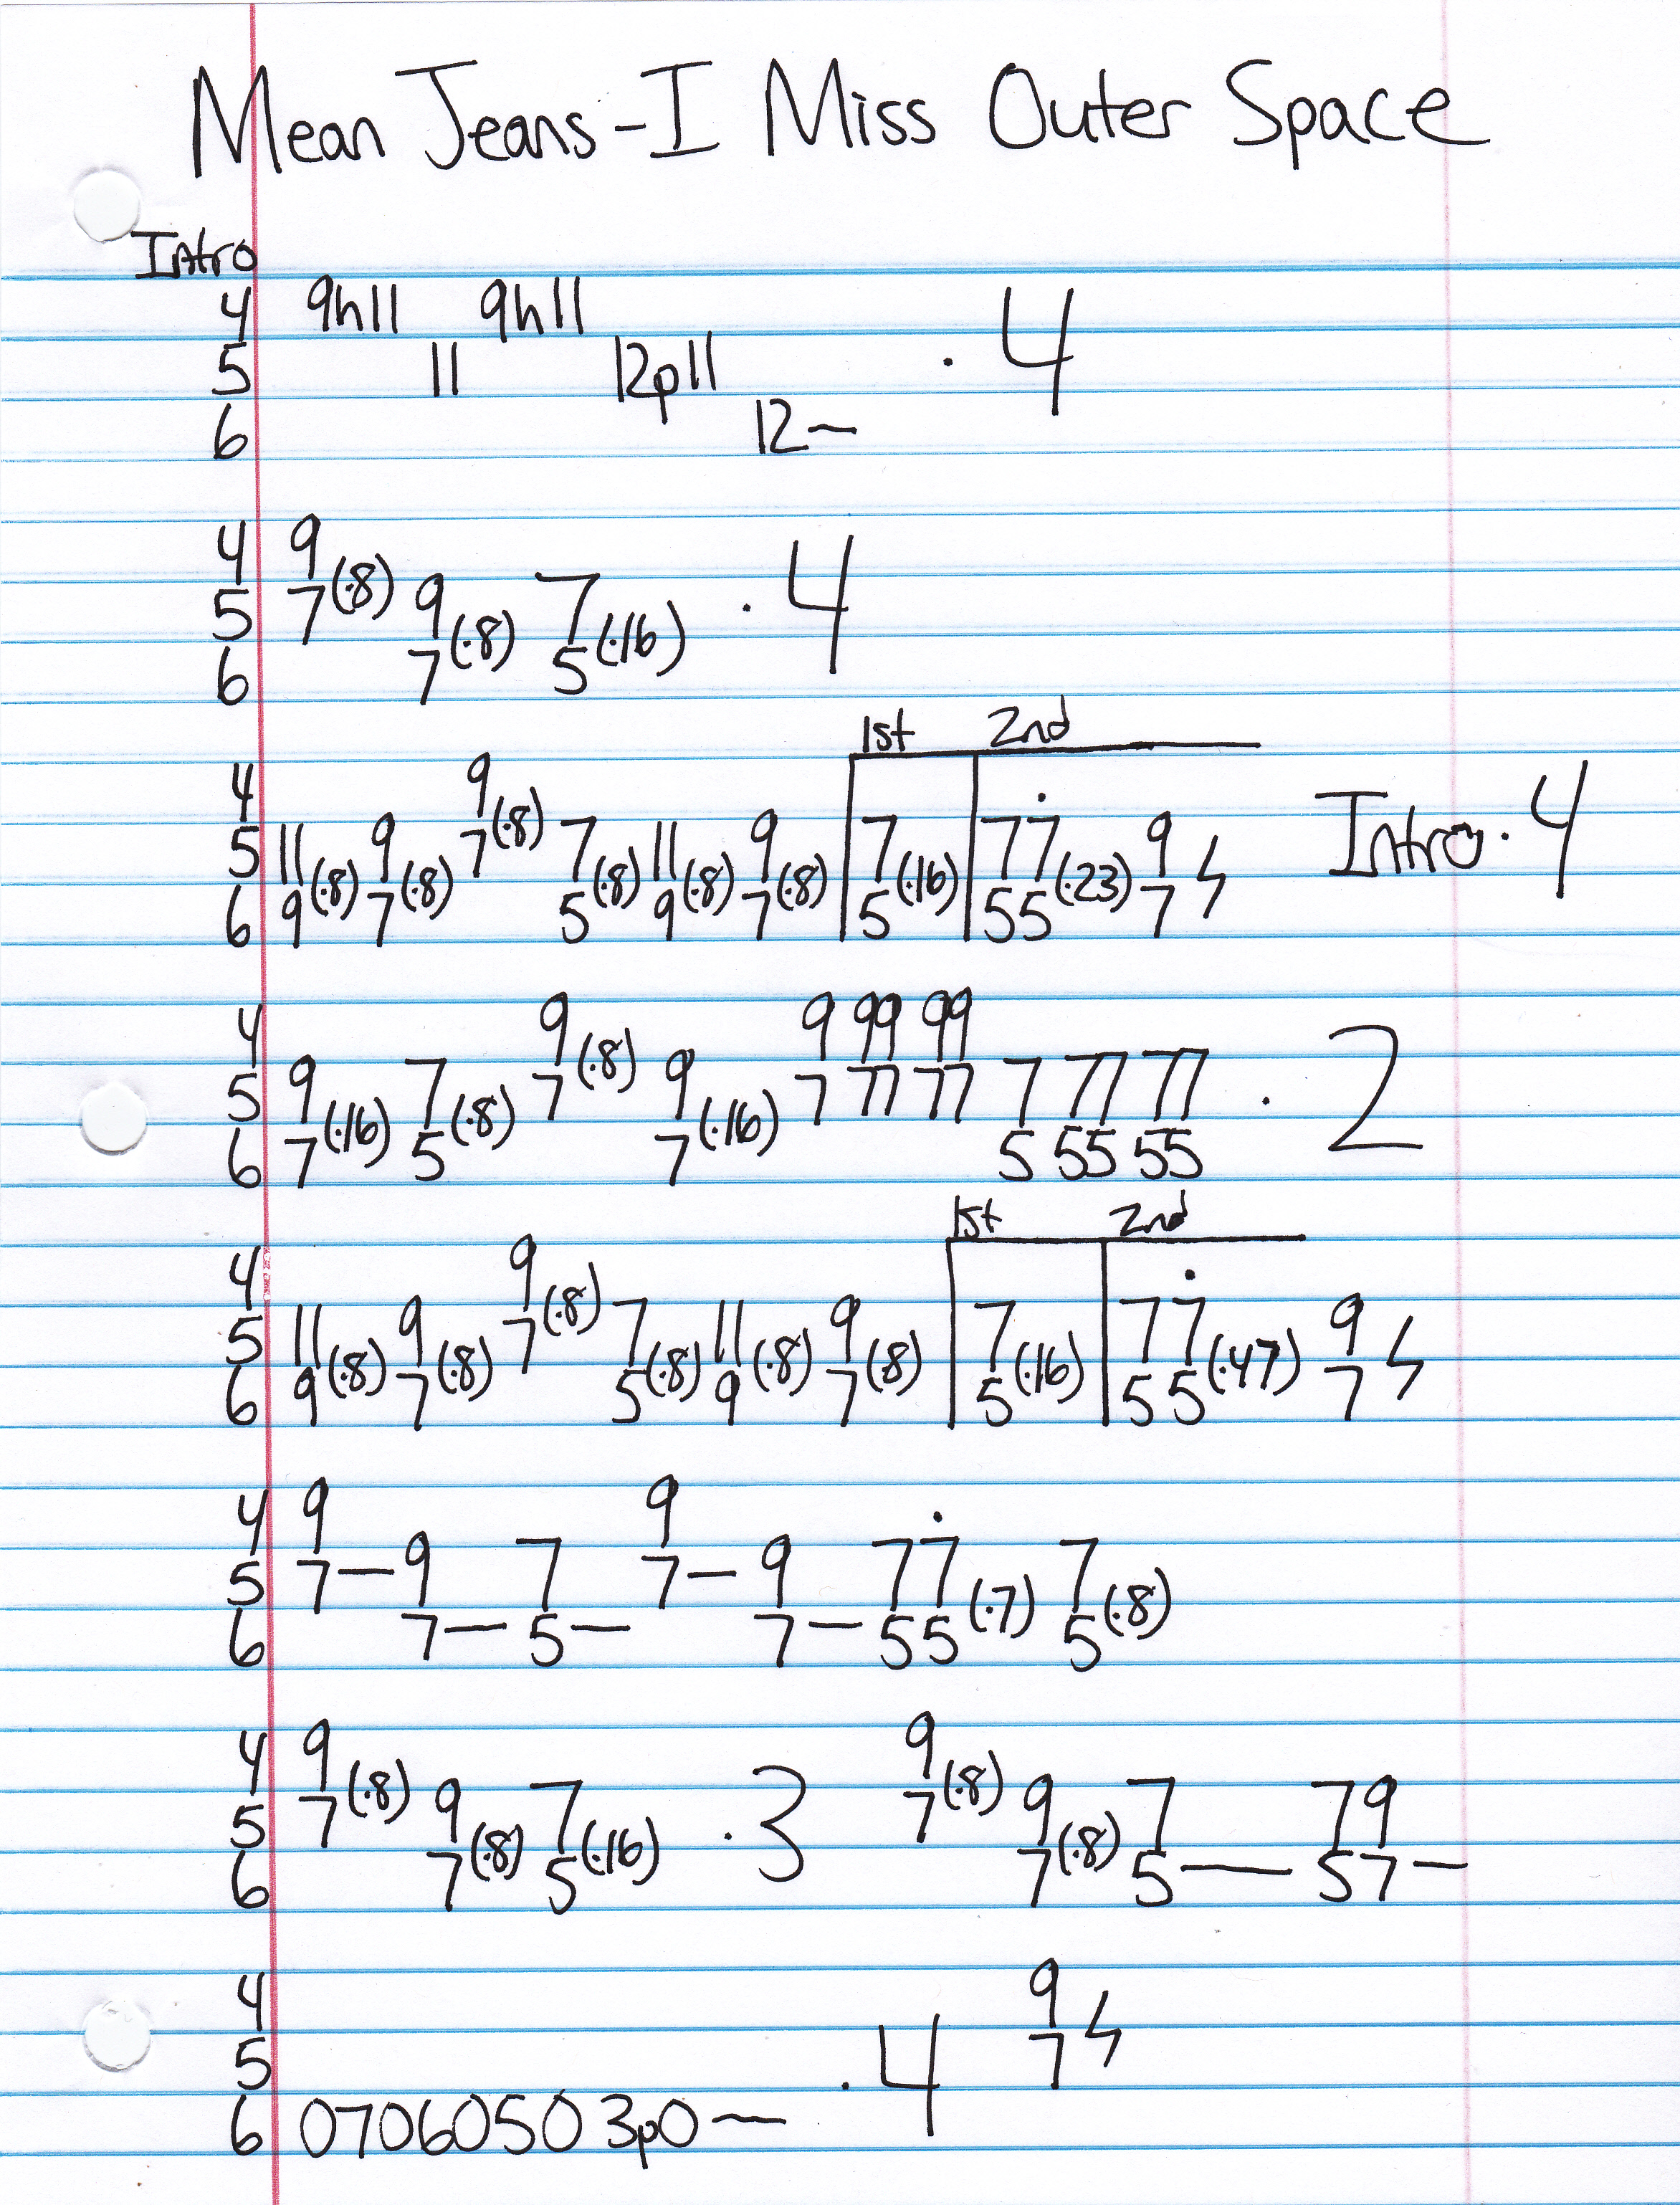 Mean Jeans - I Miss Outer Space
Intro
4 9h11 9h11
5 11 12p11 . 4
6 12~
4 9
5 7(.8) 9 7 . 4
6 7(.8) 5(.16)
1st 2nd
4 9
5 11 9 7(.8) 7 11 9 7 77̇ 9 Intro . 4
6 9(.8) 7(.8) 5(.8) 9(.8) 7(.8) 5(.16) 55(.23) 7 ϟ
4 9 9 99 99
5 9 7 7(.8) 9 7 77 77 7 77 77 . 2
6 7(.16) 5(.8) 7(.16) 5 55 55
1st 2nd
4 9
5 11 9 7(.8) 7 11 9 7 77̇ 9
6 9(.8) 7(.8) 5(.8) 9(.8) 7(.8) 5(.16) 55(.47) 7 ϟ
4 9 9
5 7— 9 7 7— 9 77̇ 7
6 7— 5— 7— 55(.7) 5(.8)
4 9 9
5 7(.8) 9 7 . 3 7(.8) 9 7 79
6 7(.8) 5(.16) 7(.8) 5— 57—
4 9
5 . 4 7 ϟ
6 07060503p0~